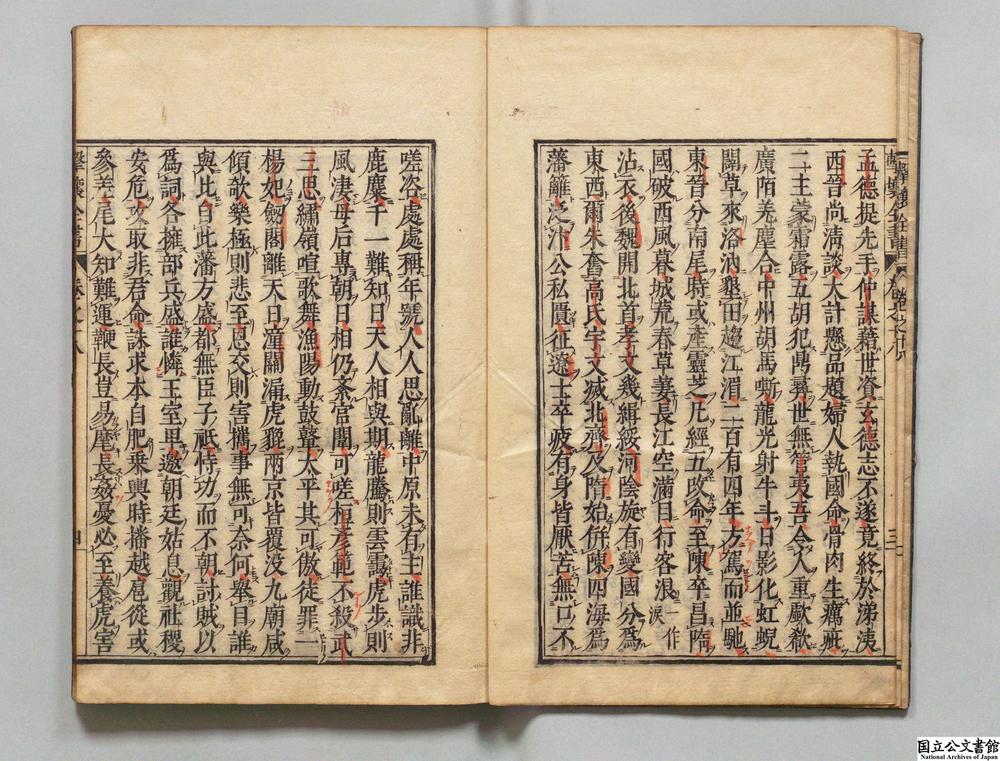 孟德提先手仲謀藉世資玄德志不遂竟終於涕洟
西晉尚淸談大計懸品題婦人執國命骨肉生癘疵
二主蒙霜露五胡犯鼎彝世無管夷吾令人重歔欷
廣陌羌塵合中州胡馬嘶龍光射牛斗日影化虹蜺
闢草來洛汭墾田趨江湄二百有四年方駕而並馳
東晉分南尾時或產靈芝凡經五改命至陳卒昌隋
國破西風暮城荒春草萋長江空滿目行客淚 一作
沾衣後魏開北首孝文幾緝綏河陰旋有變國分爲
東西爾朱奮高氏宇文滅北齊及隋始併陳四海爲
藩籬泛汴公私匱征遼士卒疲有身皆厭苦無口不
嗟咨處處稱年號人人思亂離中原未有主誰識非
鹿麋千一難知日天人相與期龍騰則雲靄虎步則
風凄母后專朝日相仍紊宮闈可嗟桓彥範不殺武
三思繡嶺喧歌舞漁陽動鼓鼙太平其可傲徒罪一
楊妃劒閣離天日潼關漏虎貔兩京皆覆沒九廟咸
傾欹樂極則悲至恩交則害攜事無可奈何舉目誰
與比自此藩方盛都無臣子祗恃功而不朝討賊以
爲詞各擁部兵盛誰憐王室卑邀朝廷姑息觀社稷
安危突取非君命誅求本自肥乘輿時播越扈從或
參差尾大知難運鞭長豈易麾長姦憂必至養虎害
擊壤全書 卷之十八 三
擊壤全書 卷之十八 四
国立公文書館
National Archives of Japan